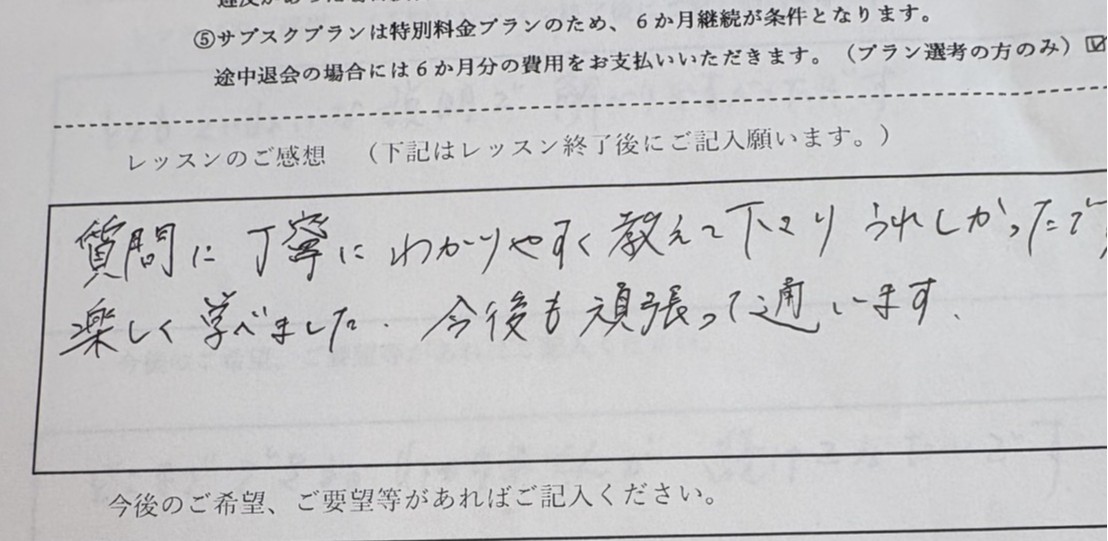 ⑤サブスクプランは特別料金プランのため、6か月継続が条件となります。
途中退会の場合には6か月分の費用をお支払いいただきます。（プラン選考の方のみ）☑
レッスンのご感想　（下記はレッスン終了後にご記入願います。）
質問に丁寧にわかりやすく教えて下さりうれしかったです
楽しく学べました．今後も頑張って通います．
今後のご希望、ご要望等があればご記入ください。